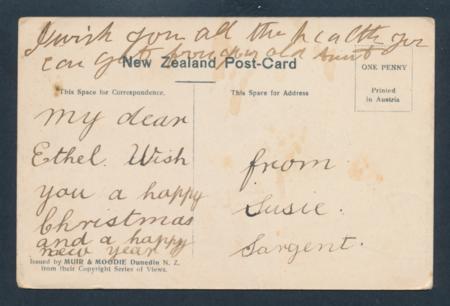 I wish you all the health you
can get from your old Aunt
New Zealand Post-Card
ONE PENNY
Printed
in Austria
This Space for Correspondence.
This Space for Address
My dear
Ethel. Wish
you a happy
Christmas
and a happy
new year
from
Susie.
Sargent.
Issued by MUIR & MOODIE Dunedin N. Z.
from their Copyright Series of Views.